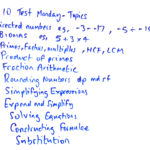 10 Test Monday - Topics
Directed numbers eg, -3 - -7, -5 ÷ -1
BIDMAS eg, 5 + 3 × 4
Primes, factors, multiples, HCF, LCM
Product of primes
Fraction Arithmetic
Rounding Numbers dp and sf
Simplifying Expressions
Expand and Simplify
Solving Equations
Constructing Formulae
Substitution